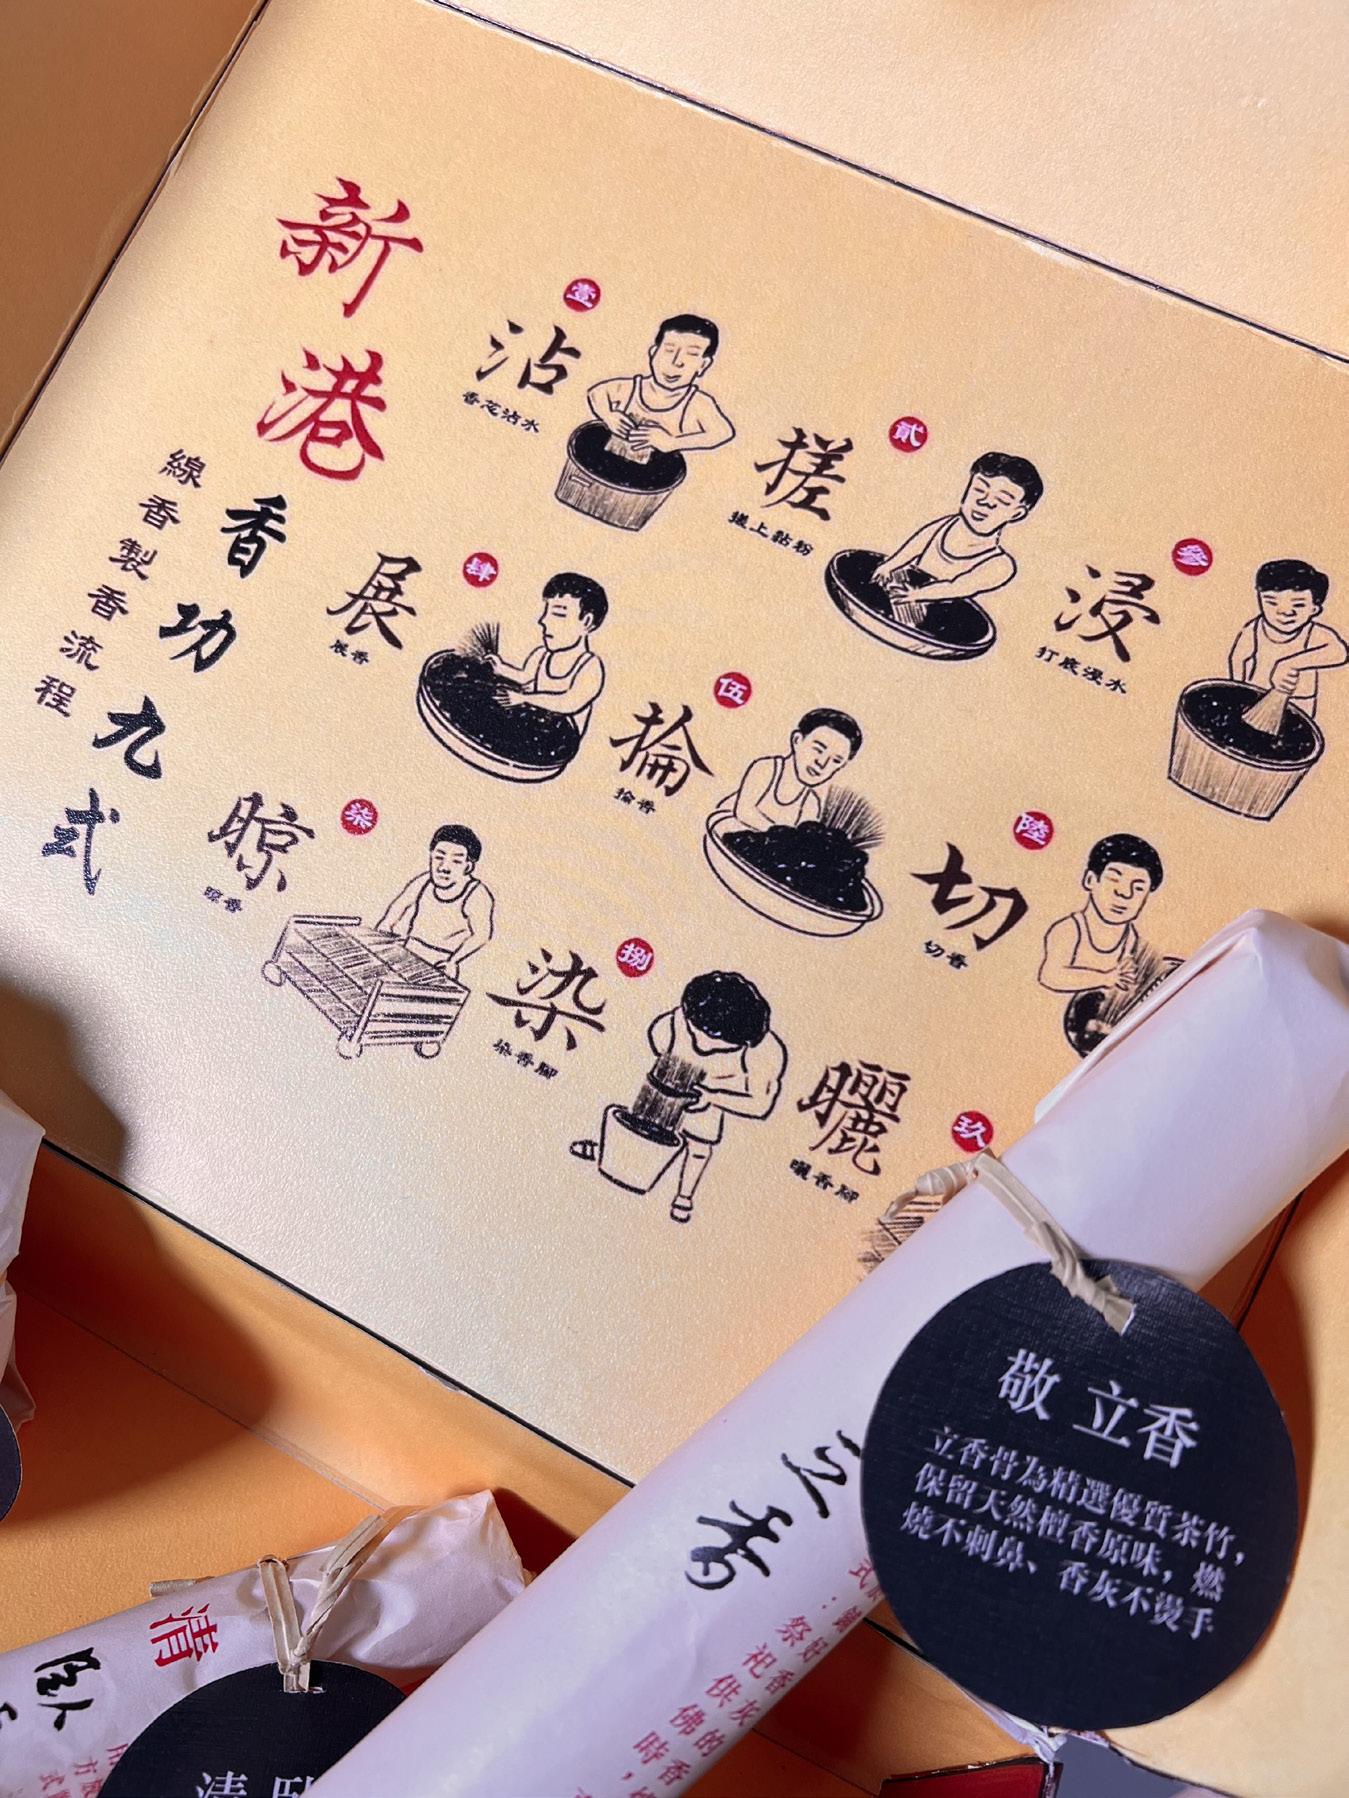 新港
香功九式
線香製香流程
壹
沾
香芯沾水
貳
搓
搓上黏粉
參
浸
打底浸水
肆
展
展香
伍
掄
掄香
陸
切
切香
柒
晾
晾香
捌
染
染香腳
玖
曬
曬香腳
敬 立香
立香骨為精選優質茶竹，
保留天然檀香原味，燃
燒不刺鼻、香灰不燙手
立香
好香灰的香
祭祀供佛時，
清
臥
清 臥